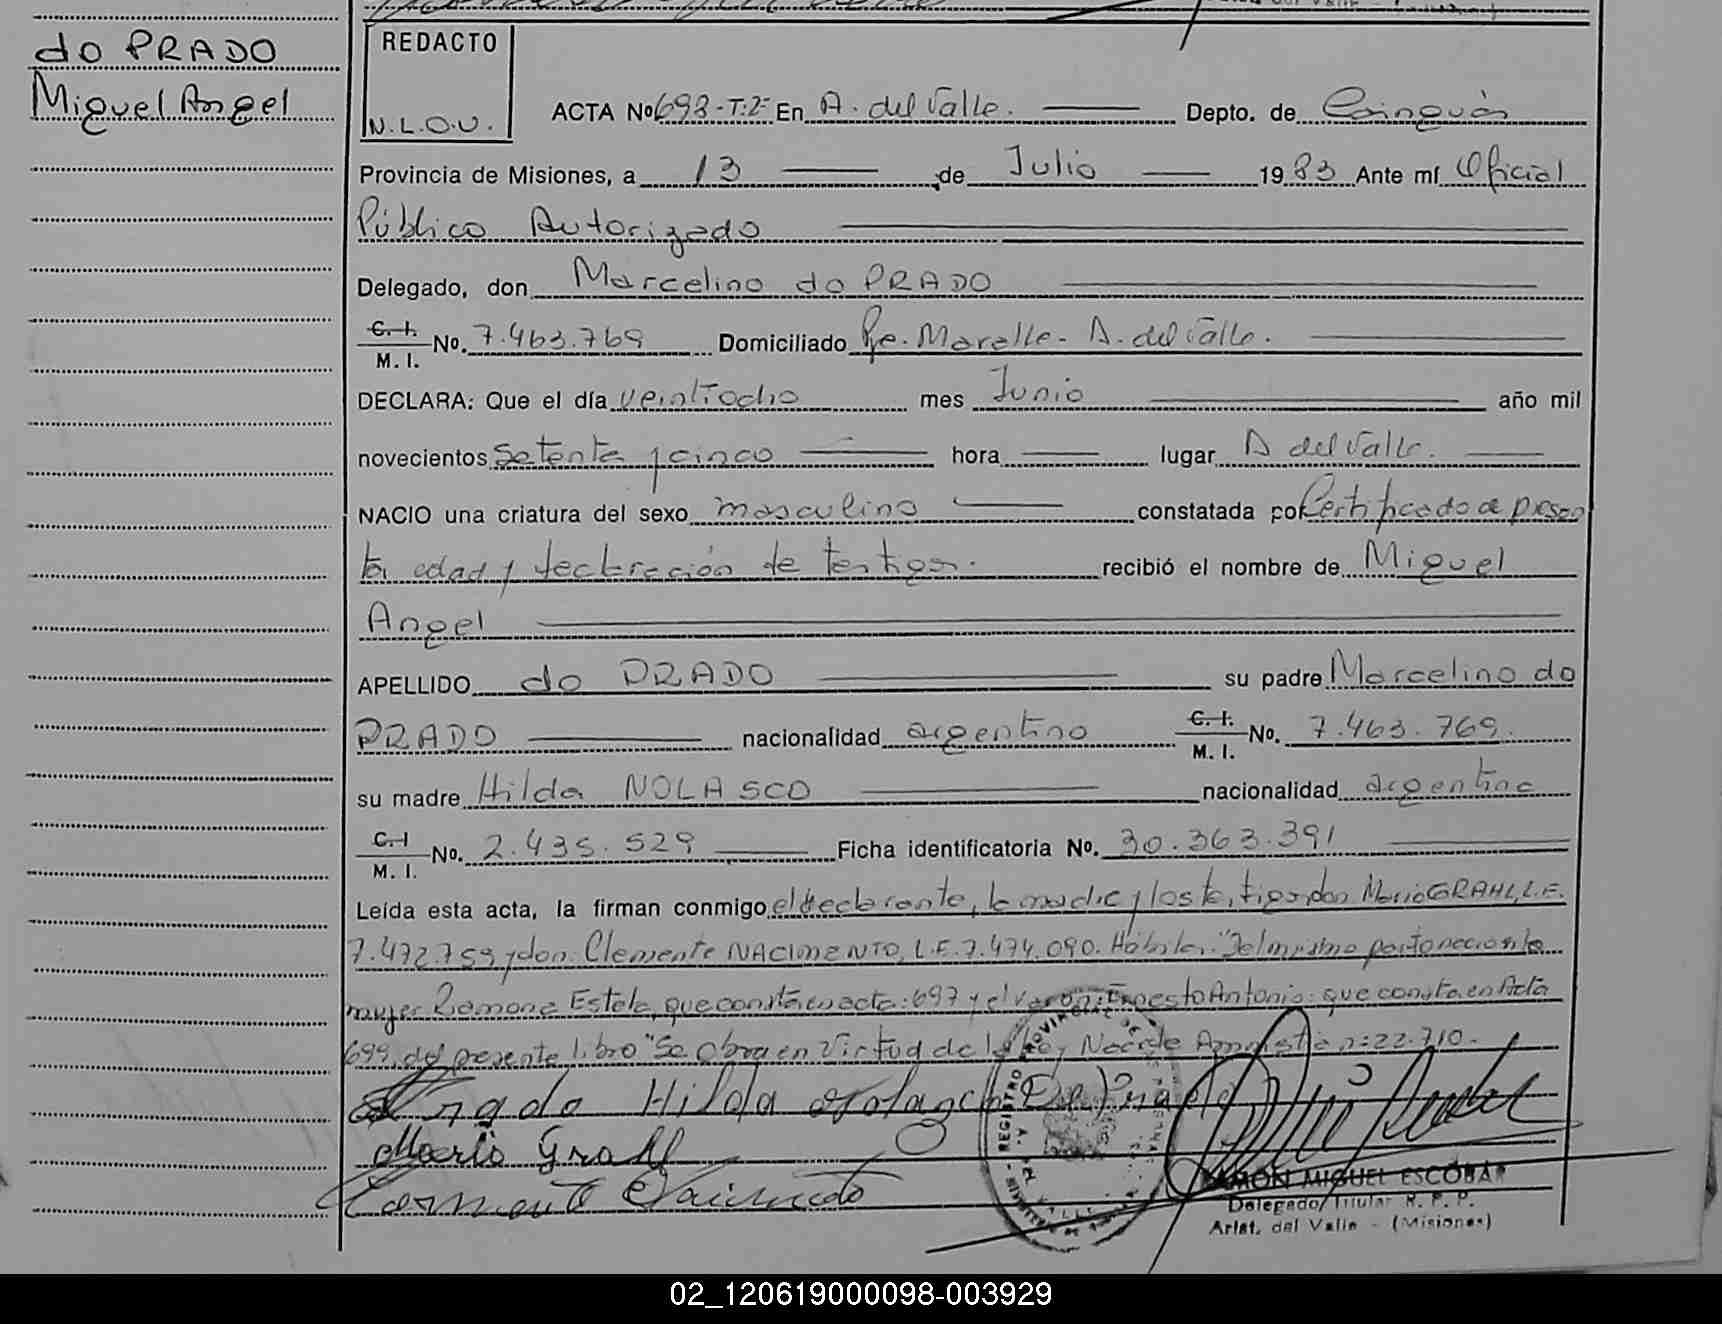 do PRADO
Miguel Angel
REDACTO
N.L.O.U.
ACTA Nº 698-T:2º En A. del Valle. Depto. de Cainguás
Provincia de Misiones, a 13 de Julio 1983 Ante mí Oficial
Público Autorizado
Delegado, don Marcelino do PRADO
C. I.
M. I. No. 7.463.769 Domiciliado Pje. Morelle - A. del Valle.
DECLARA: Que el día veintiocho mes Junio año mil
novecientos setenta y cinco hora lugar A del Valle.
NACIO una criatura del sexo masculino constatada por Certificado de presen
ta edad y declaración de testigos. recibió el nombre de Miguel
Angel
APELLIDO do PRADO su padre Marcelino do
PRADO nacionalidad argentino C. I. M. I. No. 7.463.769.
su madre Hilda NOLASCO nacionalidad argentina
C. I
M. I. No. 2.435.529 Ficha identificatoria No. 30.363.391
Leída esta acta, la firman conmigo el declarante, la madre y los testigos don Mario GRAHL, L.E.
7.472.759 y don Clemente NACIMENTO, L.E. 7.474.090. Hábiles. "Del mismo parto nacieron la
mujer Ramona Estela, que consta en acta: 697 y el varón: Ernesto Antonio: que consta en Acta
699, del presente libro "Se Obra en Virtud de la Ley Nac. de Amnistía n: 22.710.
Hilda
Mario Grall
RAMON MIGUEL ESCOBAR
Delegado Titular R. P. P.
Arist. del Valle - (Misiones)
REGISTRO PROVINCIAL DE
02_120619000098-003929